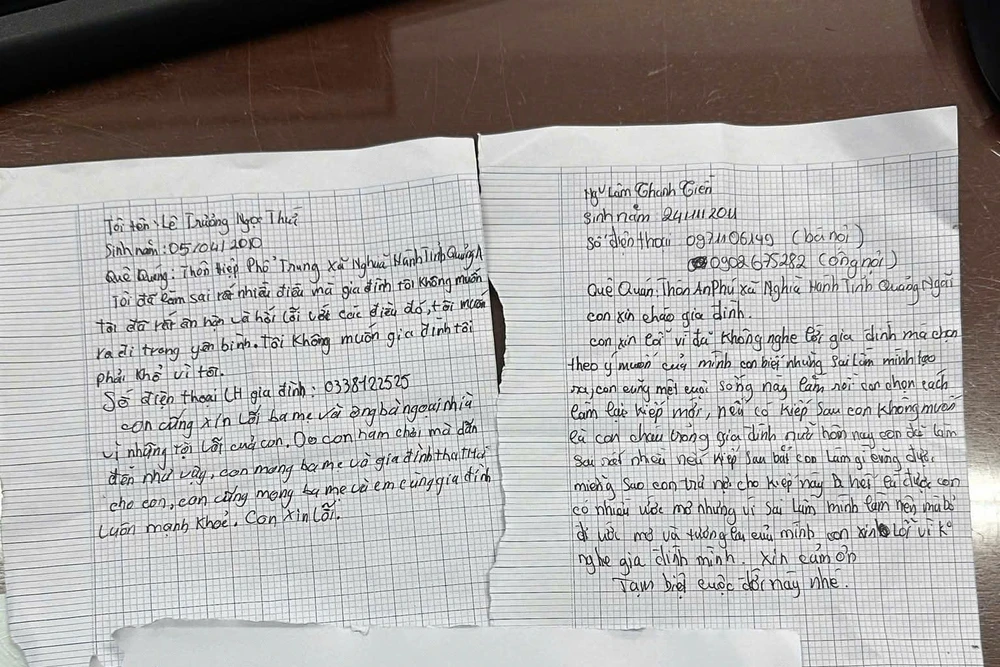 Tôi tên: Lê Trưởng Ngọc Thuý
Sinh năm: 05/04/2010
Quê Quang: Thôn Hiệp Phổ Trung xã Nghuã Hành Tỉnh Quảng
Tôi đã làm sai rất nhiều điều mà gia đình tôi không muốn
tôi đã rất ân hận và hối lỗi với các điều đó, tôi muốn
ra đi trong yên bình. Tôi không muốn gia đình tôi
phải khổ vì tôi.
Số điện thoại LH gia đình: 0338122525
con cũng xin lỗi ba mẹ và ông bà ngoại nhìa
vì những tội lỗi của con. Do con ham chơi mà dẫn
đến như vậy, con mong ba mẹ và gia đình tha thứ
cho con, con cũng mong ba mẹ và em cung gia đình
luôn mạnh khoẻ. Con xin lỗi.

Ngư Lâm Thanh Tiến
Sinh năm 24/11/2011
Số điện thoại 0971106149 (bà nội)
0908675282 (ông nội)
Quê Quán: Thôn An Phú xã Nghĩa Hành Tỉnh Quảng Ngãi
con xin chao gia đình.
con xin lỗi vì đã không nghe lời gia đình mà chọn
theo ý muốn của mình con biết những sai lầm mình tạo
ra, con cũng mệt cuộc sống này lắm rồi con chọn cách
làm lại kiếp mới, nếu có kiếp sau con không muốn
là con cháu trong gia đình nữ hôm nay con đã làm
sai rất nhiều nếu kiếp sau bắt con làm gì cũng được
miễng sao con trả nợ cho kiếp này là được con
có nhiều ước mơ nhưng vì sai lầm mình làm nên mà bỏ
đi ước mơ và tương lai của mình con xin lỗi vì k
nghe gia đình mình. xin cảm ơn
Tạm biệt cuộc đời này nhé.